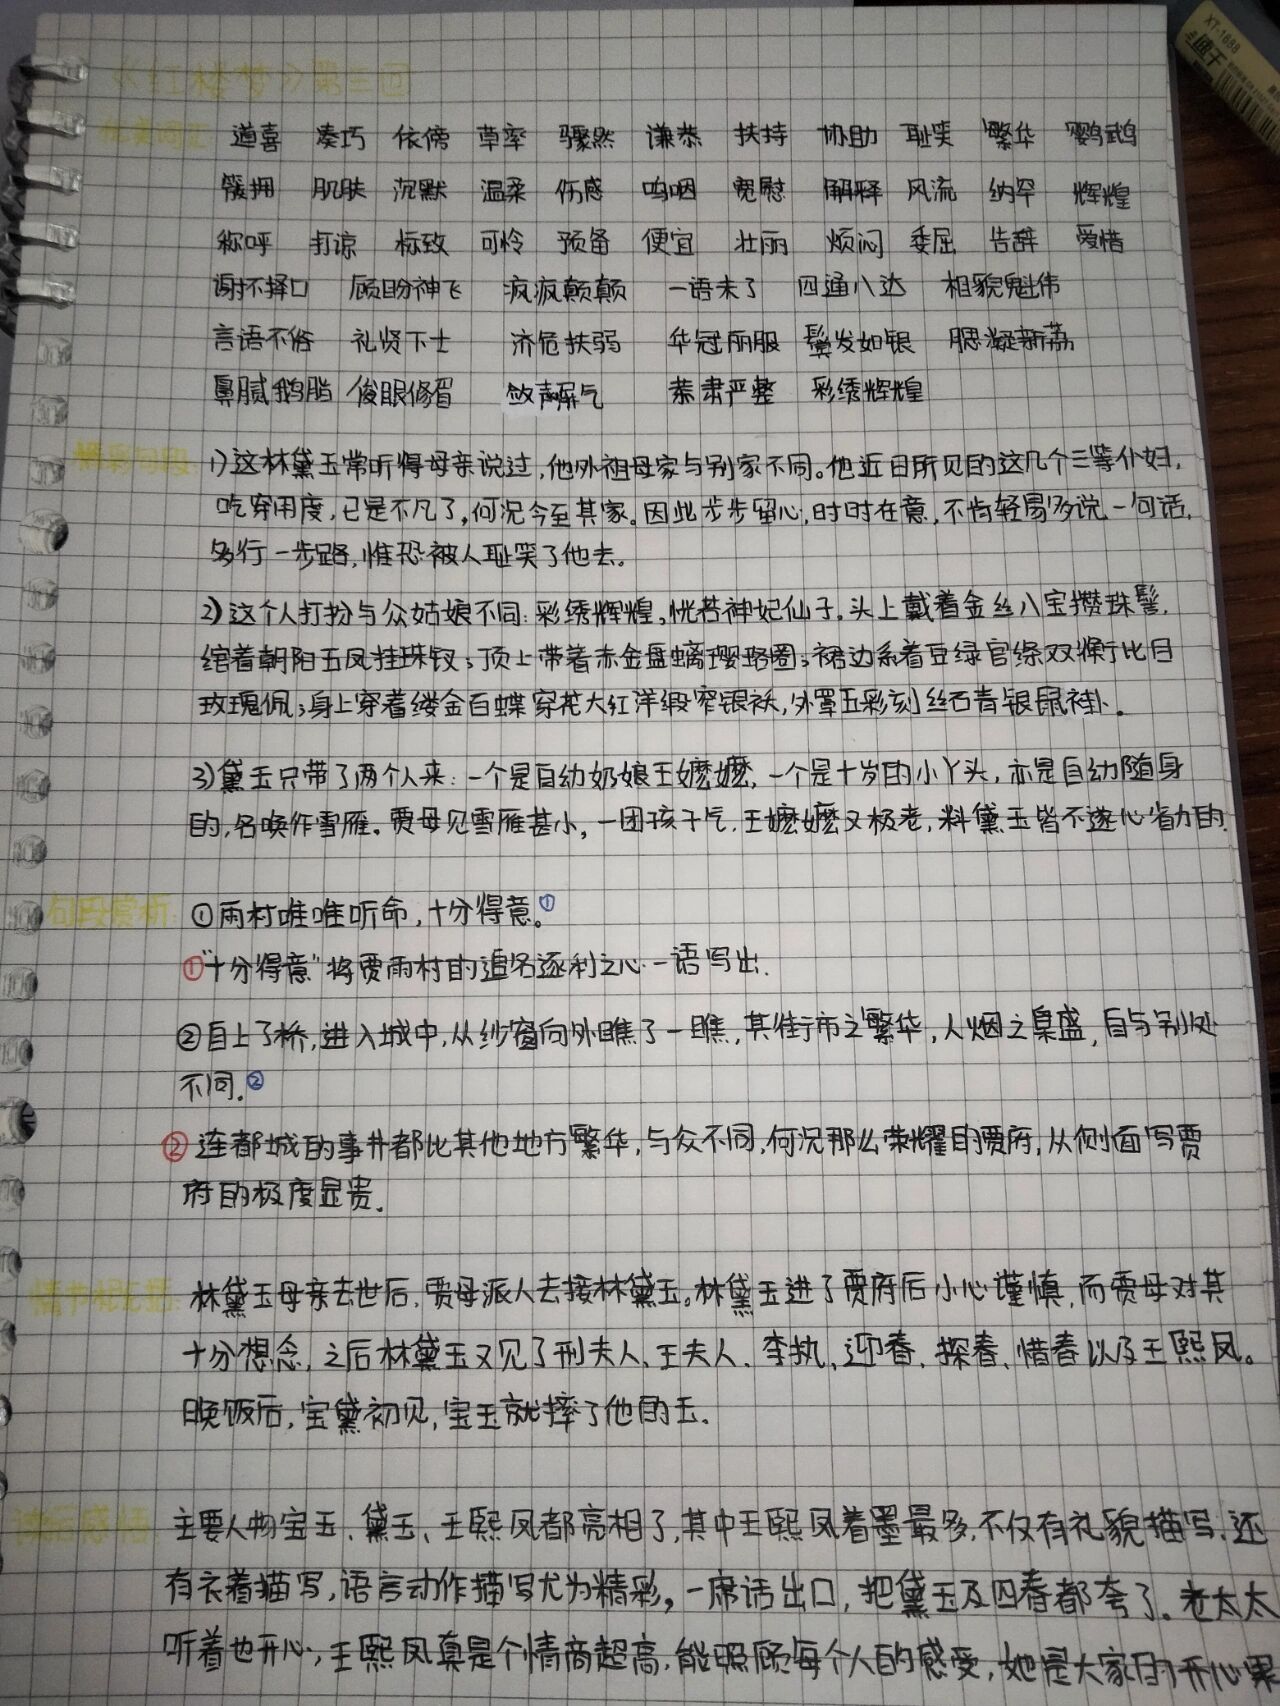 《红楼梦》第三回
优美词汇 道喜 凑巧 依傍 草率 骤然 谦恭 扶持 协助 耻笑 繁华 鹦鹉
簇拥 肌肤 沉默 温柔 伤感 呜咽 宽慰 解释 风流 纳罕 辉煌
称呼 打谅 标致 可怜 预备 便宜 壮丽 烦闷 委屈 告辞 爱惜
谢不择口 顾盼神飞 疯疯颠颠 一语未了 四通八达 相貌魁伟
言语不俗 礼贤下士 济危扶弱 华冠丽服 鬓发如银 腮凝新荔
鼻腻鹅脂 俊眼修眉 敛声屏气 恭肃严整 彩绣辉煌
精彩句段: 1)这林黛玉常听得母亲说过,他外祖母家与别家不同。他近日所见的这几个三等仆妇,
吃穿用度,已是不凡了,何况今至其家。因此步步留心,时时在意,不肯轻易多说一句话,
多行一步路,惟恐被人耻笑了他去。
2)这个人打扮与众姑娘不同:彩绣辉煌,恍若神妃仙子。头上戴着金丝八宝攒珠髻,
绾着朝阳五凤挂珠钗;顶上带着赤金盘螭璎珞圈;裙边系着豆绿官绦双衡比目
玫瑰佩;身上穿着缕金百蝶穿花大红洋缎窄银袄,外罩五彩刻丝石青银鼠褂。
3)黛玉只带了两个人来:一个是自幼奶娘王嬷嬷,一个是十岁的小丫头,亦是自幼随身
的,名唤作雪雁。贾母见雪雁甚小,一团孩子气,王嬷嬷又极老,料黛玉皆不遂心省力的.
句段赏析: ①雨村唯唯听命,十分得意。①
①"十分得意"将贾雨村的追名逐利之心一语写出.
②自上了桥,进入城中,从纱窗向外瞧了一瞧,其街市之繁华,人烟之阜盛,自与别处
不同.②
②连都城的事井都比其他地方繁华,与众不同,何况那么荣耀的贾府,从侧面写贾
府的极度显贵.
情节梳理: 林黛玉母亲去世后,贾母派人去接林黛玉。林黛玉进了贾府后小心谨慎,而贾母对其
十分想念,之后林黛玉又见了刑夫人、王夫人、李执、迎春、探春、惜春以及王熙凤。
晚饭后,宝黛初见,宝玉就摔了他的玉.
读后感悟 主要人物宝玉、黛玉、王熙凤都亮相了,其中王熙凤着墨最多,不仅有礼貌描写,还
有衣着描写,语言动作描写尤为精彩,一席话出口,把黛玉及四春都夸了。老太太
听着也开心;王熙凤真是个情商超高,能照顾每个人的感受,她是大家的开心果
XT-1688
速干